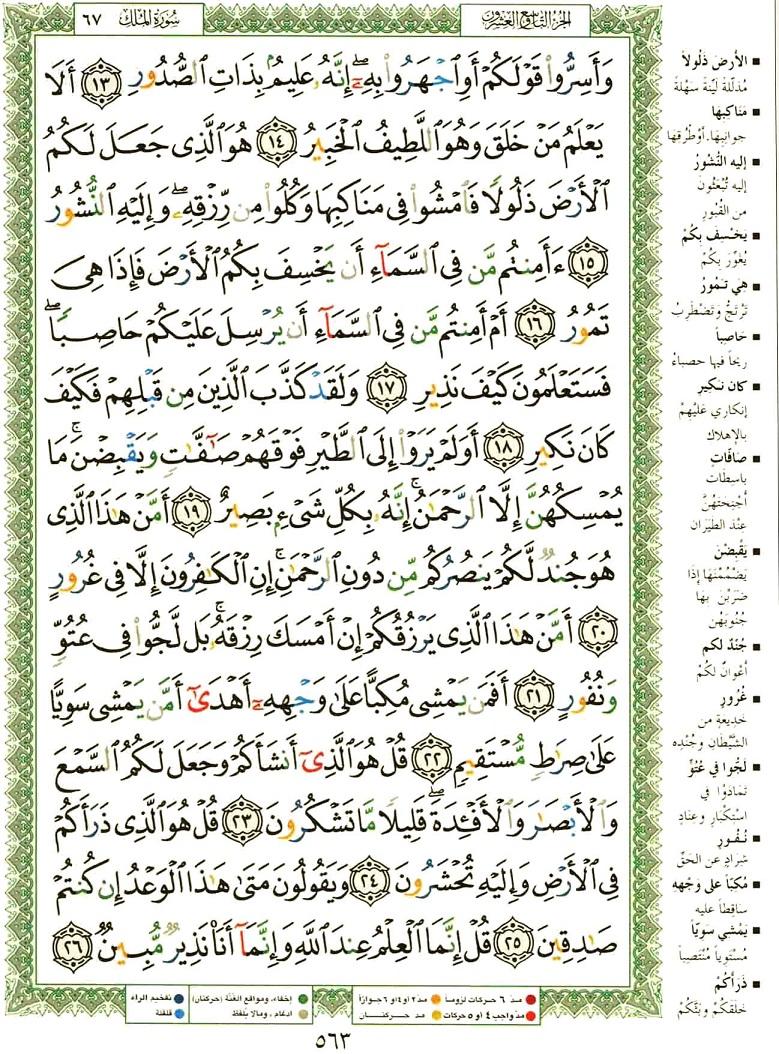 سُورَةُ المُلْك ٦٧
الجزء التاسع والعشرون
وَأَسِرُّوا۟ قَوْلَكُمْ أَوِ ٱجْهَرُوا۟ بِهِۦٓ ۖ إِنَّهُۥ عَلِيمٌۢ بِذَاتِ ٱلصُّدُورِ ١٣ أَلَا
يَعْلَمُ مَنْ خَلَقَ وَهُوَ ٱللَّطِيفُ ٱلْخَبِيرُ ١٤ هُوَ ٱلَّذِى جَعَلَ لَكُمُ
ٱلْأَرْضَ ذَلُولًا فَٱمْشُوا۟ فِى مَنَاكِبِهَا وَكُلُوا۟ مِن رِّزْقِهِۦ ۖ وَإِلَيْهِ ٱلنُّشُورُ
١٥ ءَأَمِنتُم مَّن فِى ٱلسَّمَآءِ أَن يَخْسِفَ بِكُمُ ٱلْأَرْضَ فَإِذَا هِىَ
تَمُورُ ١٦ أَمْ أَمِنتُم مَّن فِى ٱلسَّمَآءِ أَن يُرْسِلَ عَلَيْكُمْ حَاصِبًا ۖ
فَسَتَعْلَمُونَ كَيْفَ نَذِيرِ ١٧ وَلَقَدْ كَذَّبَ ٱلَّذِينَ مِن قَبْلِهِمْ فَكَيْفَ
كَانَ نَكِيرِ ١٨ أَوَلَمْ يَرَوْا۟ إِلَى ٱلطَّيْرِ فَوْقَهُمْ صَٰٓفَّٰتٍ وَيَقْبِضْنَ ۚ مَا
يُمْسِكُهُنَّ إِلَّا ٱلرَّحْمَٰنُ ۚ إِنَّهُۥ بِكُلِّ شَىْءٍۭ بَصِيرٌ ١٩ أَمَّنْ هَٰذَا ٱلَّذِى
هُوَ جُندٌ لَّكُمْ يَنصُرُكُم مِّن دُونِ ٱلرَّحْمَٰنِ ۚ إِنِ ٱلْكَٰفِرُونَ إِلَّا فِى غُرُورٍ
٢٠ أَمَّنْ هَٰذَا ٱلَّذِى يَرْزُقُكُمْ إِنْ أَمْسَكَ رِزْقَهُۥ ۚ بَل لَّجُّوا۟ فِى عُتُوٍّ
وَنُفُورٍ ٢١ أَفَمَن يَمْشِى مُكِبًّا عَلَىٰ وَجْهِهِۦٓ أَهْدَىٰٓ أَمَّن يَمْشِى سَوِيًّا
عَلَىٰ صِرَٰطٍ مُّسْتَقِيمٍ ٢٢ قُلْ هُوَ ٱلَّذِىٓ أَنشَأَكُمْ وَجَعَلَ لَكُمُ ٱلسَّمْعَ
وَٱلْأَبْصَٰرَ وَٱلْأَفْـِٔدَةَ ۖ قَلِيلًا مَّا تَشْكُرُونَ ٢٣ قُلْ هُوَ ٱلَّذِى ذَرَأَكُمْ
فِى ٱلْأَرْضِ وَإِلَيْهِ تُحْشَرُونَ ٢٤ وَيَقُولُونَ مَتَىٰ هَٰذَا ٱلْوَعْدُ إِن كُنتُمْ
صَٰدِقِينَ ٢٥ قُلْ إِنَّمَا ٱلْعِلْمُ عِندَ ٱللَّهِ وَإِنَّمَآ أَنَا۠ نَذِيرٌ مُّبِينٌ ٢٦
■ الأرض ذلولاً
مُذَلَّلَةً لَيِّنَةً سَهْلَةً
■ مَنَاكِبِهَا
جوانبها.أو طُرُقِها
■ إليه النُّشُورُ
إليه تُبْعَثُون
من القُبُورِ
■ يَخْسِفَ بِكُمُ
يُغَوِّرَ بِكُمُ
■ هي تمُورُ
تَرْتَجُّ وتَضْطَرِبُ
■ حَاصِباً
ريحاً فيها حصباءُ
■ كان نكيرِ
إنكاري عَلَيْهِمْ
بالإهلاك
■ صَافَّاتٍ
باسِطَات
أَجْنِحَتَهُنَّ
عِنْدَ الطَّيَران
■ يَقْبِضْن
يَضْمُمْنَهَا إذا
ضَرَبْنَ بها
جُنُوبَهُن
■ جُنْدٌ لكم
أعْوانٌ لكُمْ
■ غُرُورٍ
خَديعَةٍ من
الشَّيْطَانِ وجُنْدِه
■ لَجُّوا في عُتُوٍّ
تمَادَوْا في
اسْتِكْبَارٍ وعِنَادٍ
■ نُفُورٍ
شِرَادٍ عن الحقِّ
■ مُكِبّاً على وَجْهِهِ
ساقِطاً عليه
■ يَمْشِي سَوِيّاً
مُسْتَوِياً مُنْتَصِباً
■ ذَرَأَكُمْ
خلقَكُمْ وبثَّكُمْ
● مدّ ٦ حركات لزوماً ● مدّ ٢ أو ٤ أو ٦ جوازاً
● مدّ واجب ٤ أو ٥ حركات ● مد حركتان
● إخفاء، ومواقع الغُنَّة (حركتان) ● تفخيم الراء
● ادغام ، وما لا يُلفَظ ● قلقلة
٥٦٣